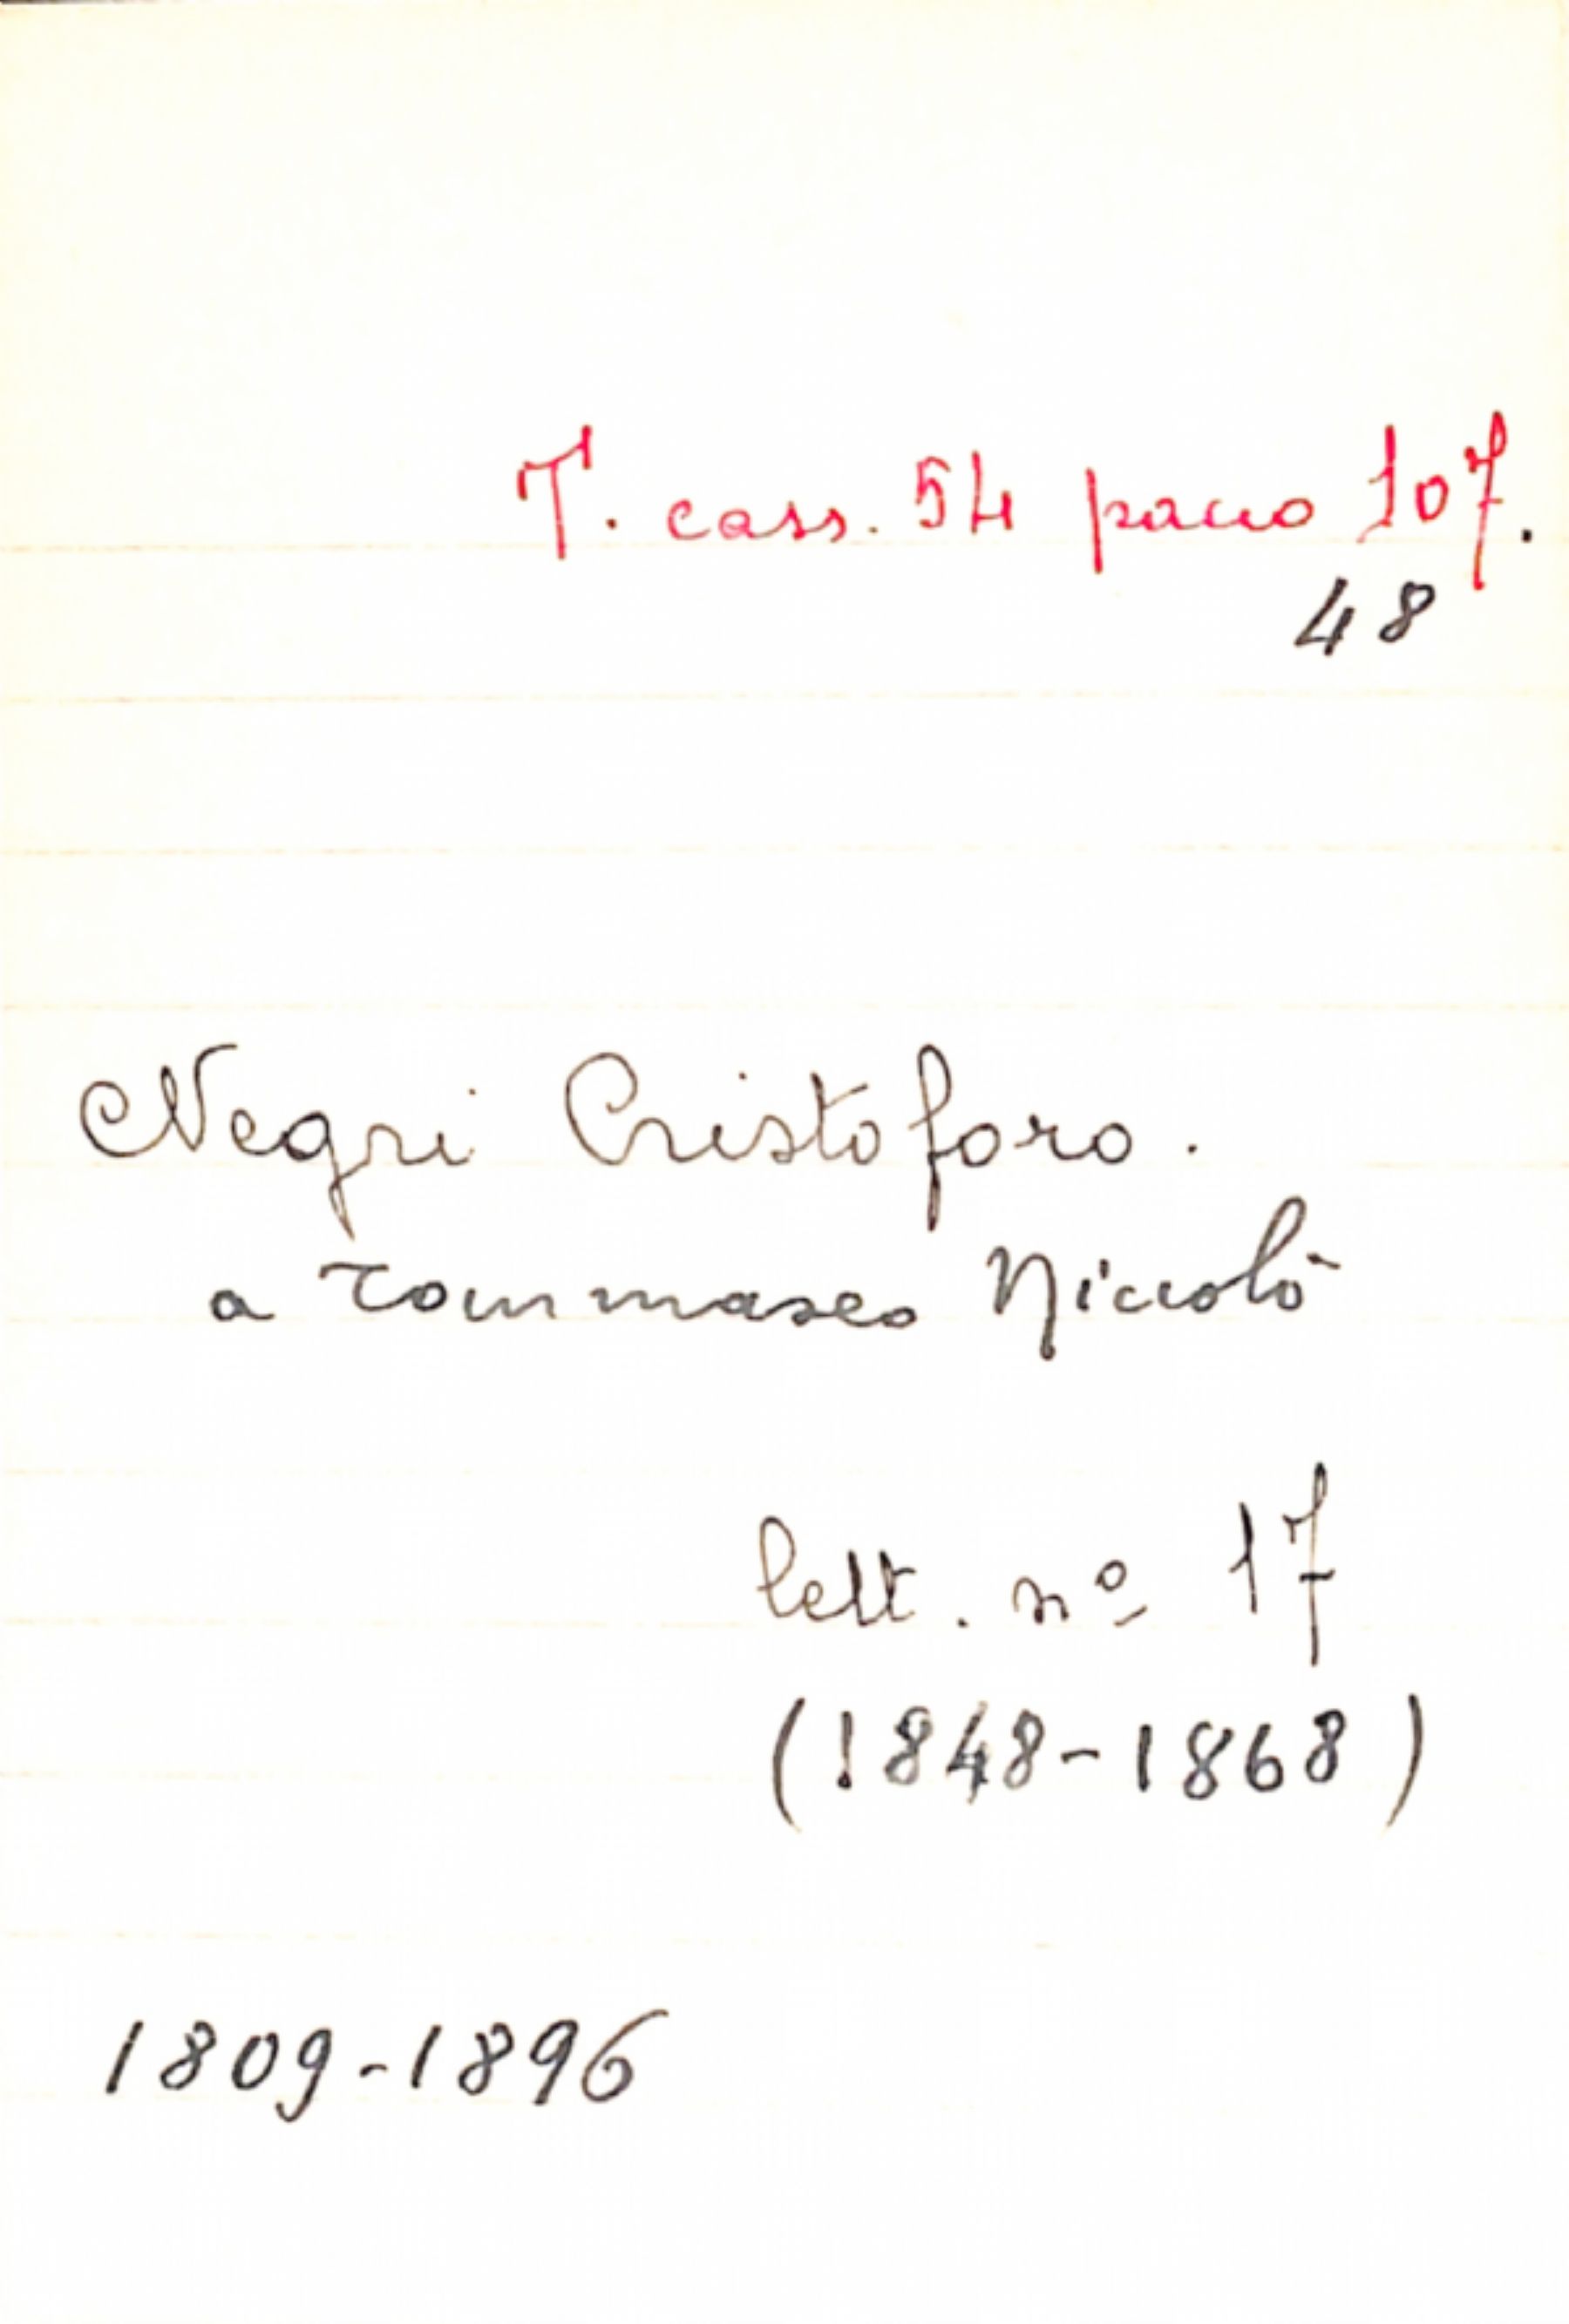 T. cass. 54 pacco 107.
48
Negri Cristoforo.
a Tommaseo Niccolò
lett. nº 17
(1848-1868)
1809-1896